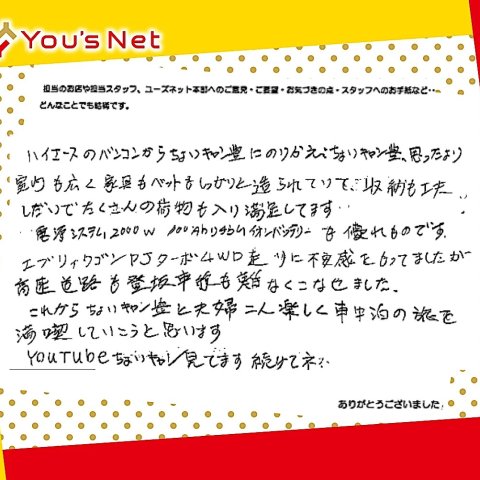 You's Net
担当のお店や担当スタッフ、ユーズネット本部へのご意見・ご要望・お気づきの点・スタッフへのお手紙など・・
どんなことでも結構です。
ハイエースのバンコンからちょいキャン豊にのりかえ、ちょいキャン豊、思ったより
室内も広く家具もベットもしっかりと造られていて、収納も工夫
しだいでたくさんの荷物も入り満足してます
電源システム2000W 100Ahリチウムイオンバッテリーも優れものです。
エブリィワゴンPJターボ4WD走りに不安感をもってましたが
高速道路も登坂車線も難なくこなせました。
これからちょいキャン豊と夫婦二人楽しく車中泊の旅を
満喫していこうと思います
YouTubeちょいキャン見てます 続けてネ
ありがとうございました